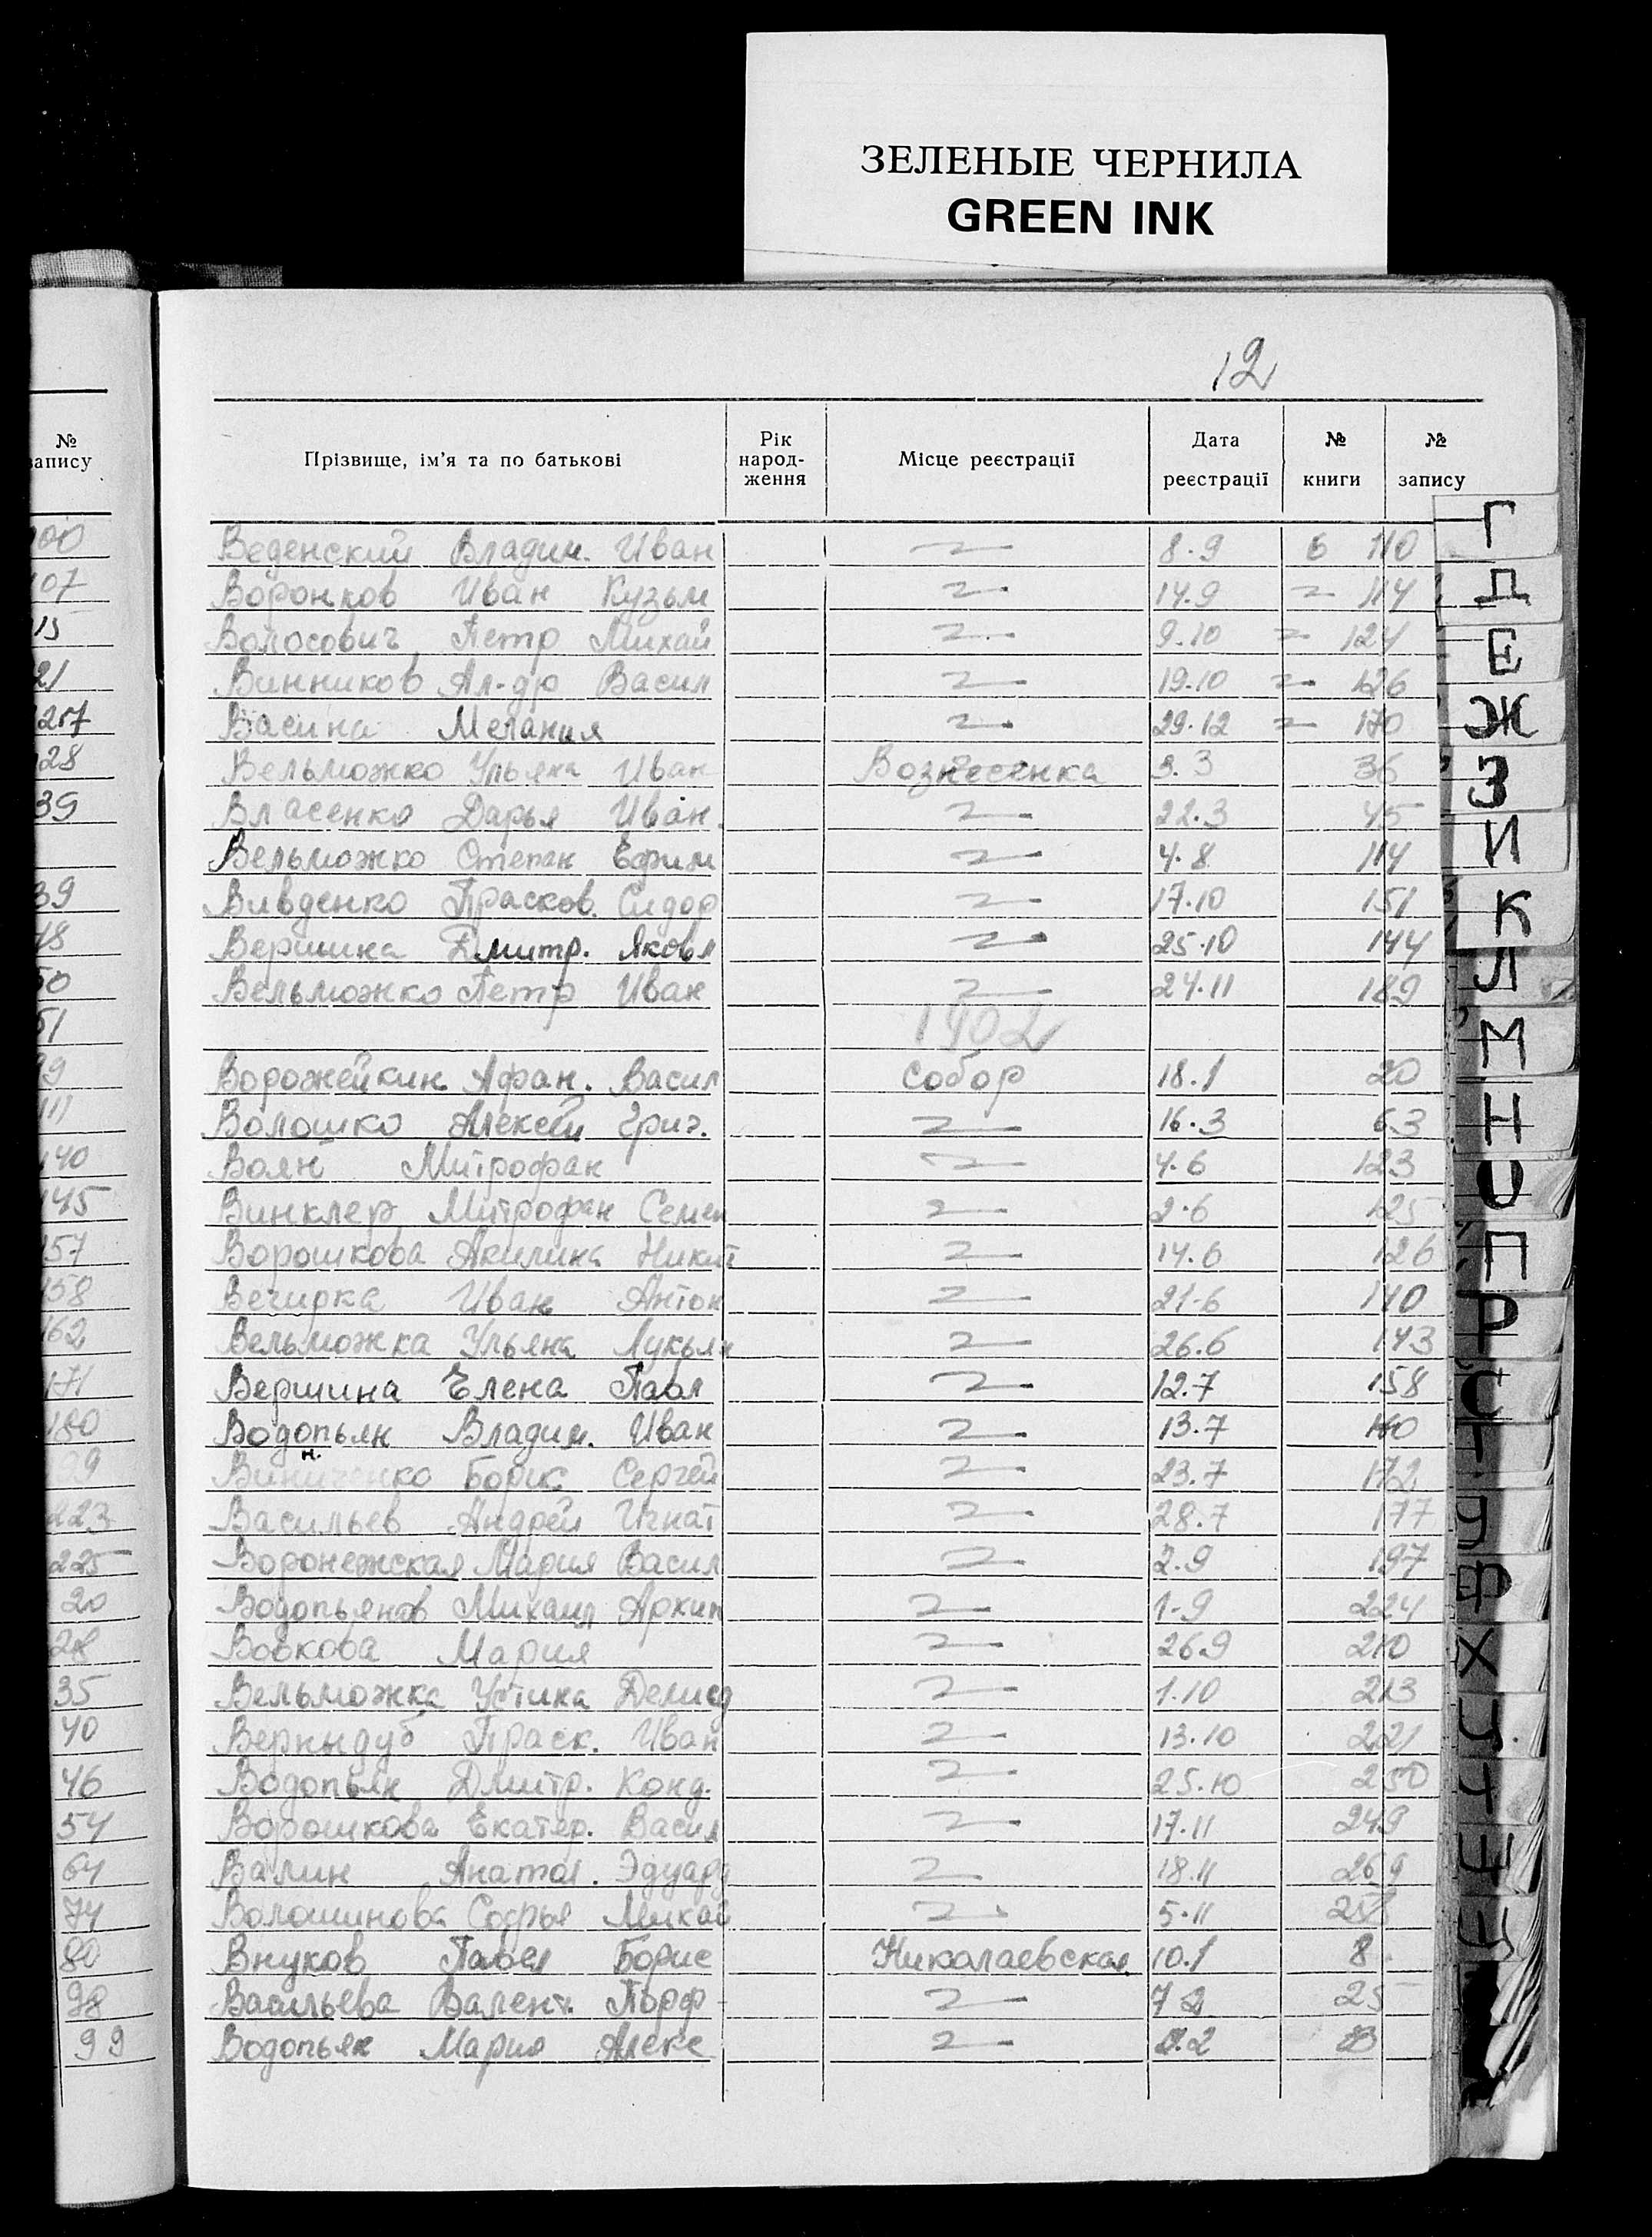 ЗЕЛЕНЫЕ ЧЕРНИЛА
GREEN INK
12
№ запису
Прізвище, ім’я та по батькові Рік народ-ження Місце реєстрації Дата реєстрації № книги № запису
Веденский Владим. Иван 〃 8.9 6 110
Воронков Иван Кузьм 〃 14.9 〃 114
Волосович Петр Михай 〃 9.10 〃 124
Винников Ал-др Васил 〃 19.10 〃 126
Васина Мелания 〃 29.12 〃 170
Вельможко Ульяна Иван Вознесенка 3.3 36
Власенко Дарья Иван. 〃 22.3 45
Вельможко Степан Ефим 〃 4.8 114
Вивденко Прасков. Сидор 〃 17.10 151
Вершина Дмитр. Яковл 〃 25.10 144
Вельможко Петр Иван 〃 24.11 189
1902
Ворожейкин Афан. Васил собор 18.1 20
Волошко Алексей Григ. 〃 16.3 63
Воян Митрофан 〃 4.6 123
Винклер Митрофан Семен 〃 2.6 125
Ворошкова Акилина Никит 〃 14.6 126
Вечирка Иван Антон 〃 21-6 140
Вельможка Ульяна Лукьян 〃 26.6 143
Вершина Елена Павл 〃 12.7 158
Водопьян Владим. Иван 〃 13.7
Виниченко Борис Сергей 〃 23.7 172
Васильев Андрей Игнат 〃 28.7 177
Воронежская Мария Васил 〃 2.9 197
Водопьянов Михаил Архип 〃 1-9 224
Вовкова Мария 〃 26.9 210
Вельможка Устина Демид 〃 1.10 213
Вернидуб Праск. Иван 〃 13.10 221
Водопьян Дмитр. Конд. 〃 25.10 250
Ворошкова Екатер. Васил 〃 17.11 249
Валин Анатол. Эдуард 〃 18.11 269
Волошинова Софья Михай 〃 5.11
Внуков Павел Борис Николаевская 10.1 8
Васильева Валент. Порф 〃 7 2 25
Водопьян Мария Алекс 〃
Г
Д
Е
Ж
З
И
К
Л
М
Н
О
П
Р
С
Х